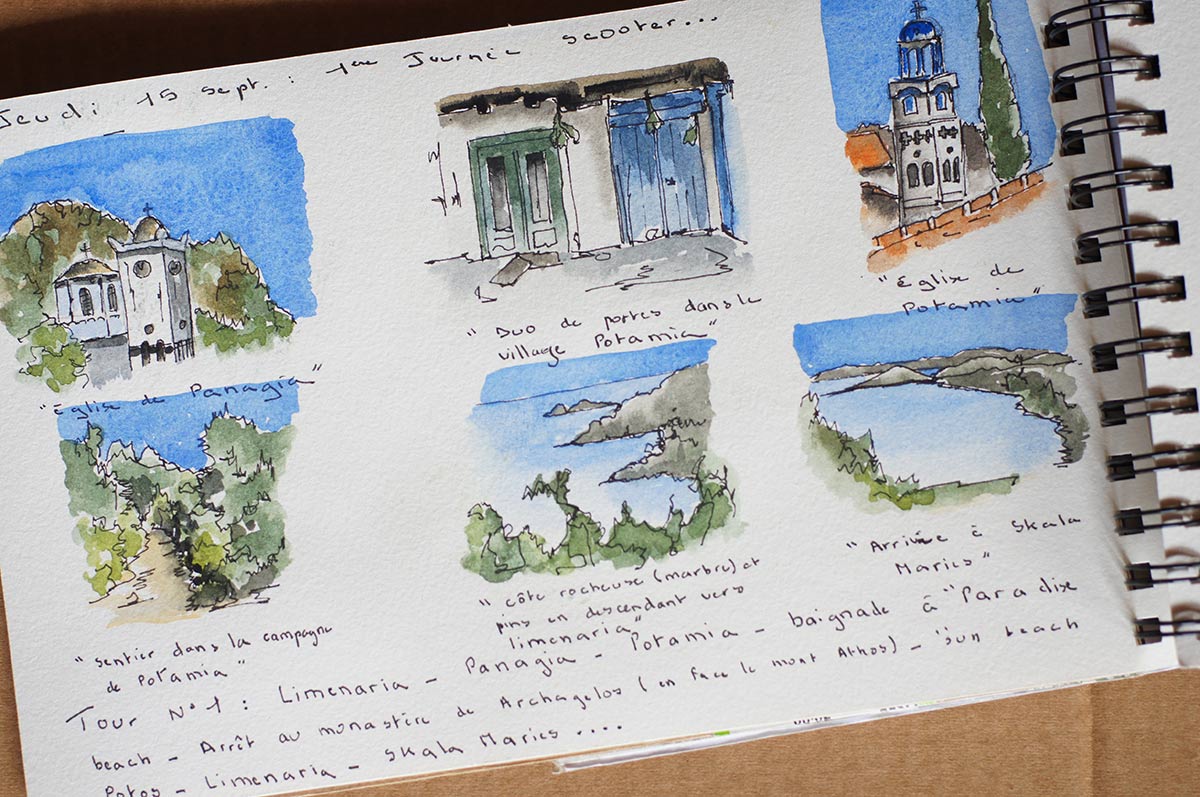 Jeudi 15 sept. : 1ère Journée scooter...
"Église de Panagia"
"Duo de portes dans le
village Potamia"
"Église de
Potamia"
"sentier dans la campagne
de Potamia"
"côte rocheuse (marbre) et
pins en descendant vers
limenaria"
"Arrivée à Skala
Maries"
Tour N°1 : Limenaria - Panagia - Potamia - baignade à "Paradise
beach - Arrêt au monastère de Archagelos (en face le mont Athos) - "Sun beach
Potos - Limenaria - Skala Maries ....